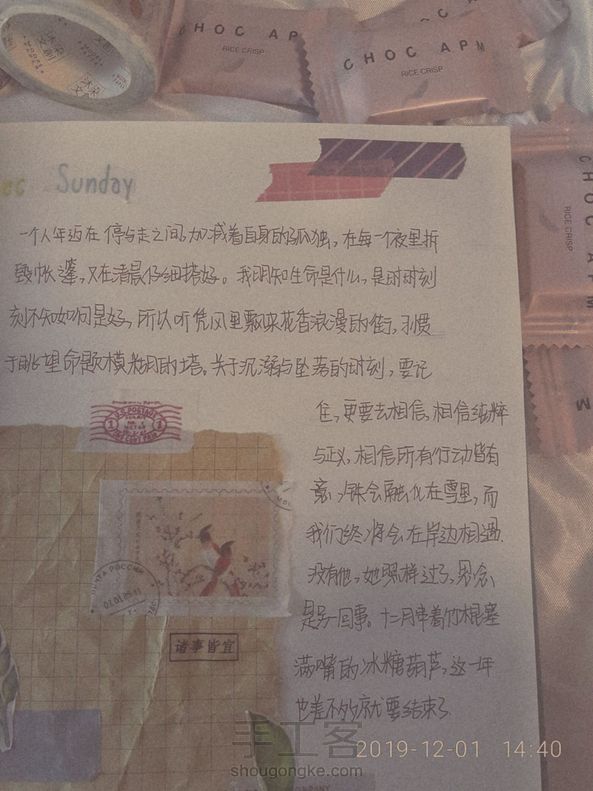 CHOC APM
RICE CRISP
CHOC APM
RICE CRISP
CHOC APM
RICE CRISP
Sunday
一个人 在停与走之间,加减着自身的孤独,在每一个夜里拆
毁帐篷,又在清晨仔细搭好。我明知生命是什么,是时时刻
刻不知如何是好,所以听凭风里飘来花香浪漫的街,习惯
于眺望命题模糊的塔。关于沉溺与坠落的时刻,要记
住,更要去相信,相信纯粹
与正义,相信所有行动皆有
意,铁会融化在雪里,而
我们终将会在岸边相遇.
没有他,她照样过了,思念
是另一回事。十二月串着竹棍塞
满嘴的冰糖葫芦,这一年
也差不多就要结束了
诸事皆宜
手工客
shougongke.com
2019-12-01 14:40